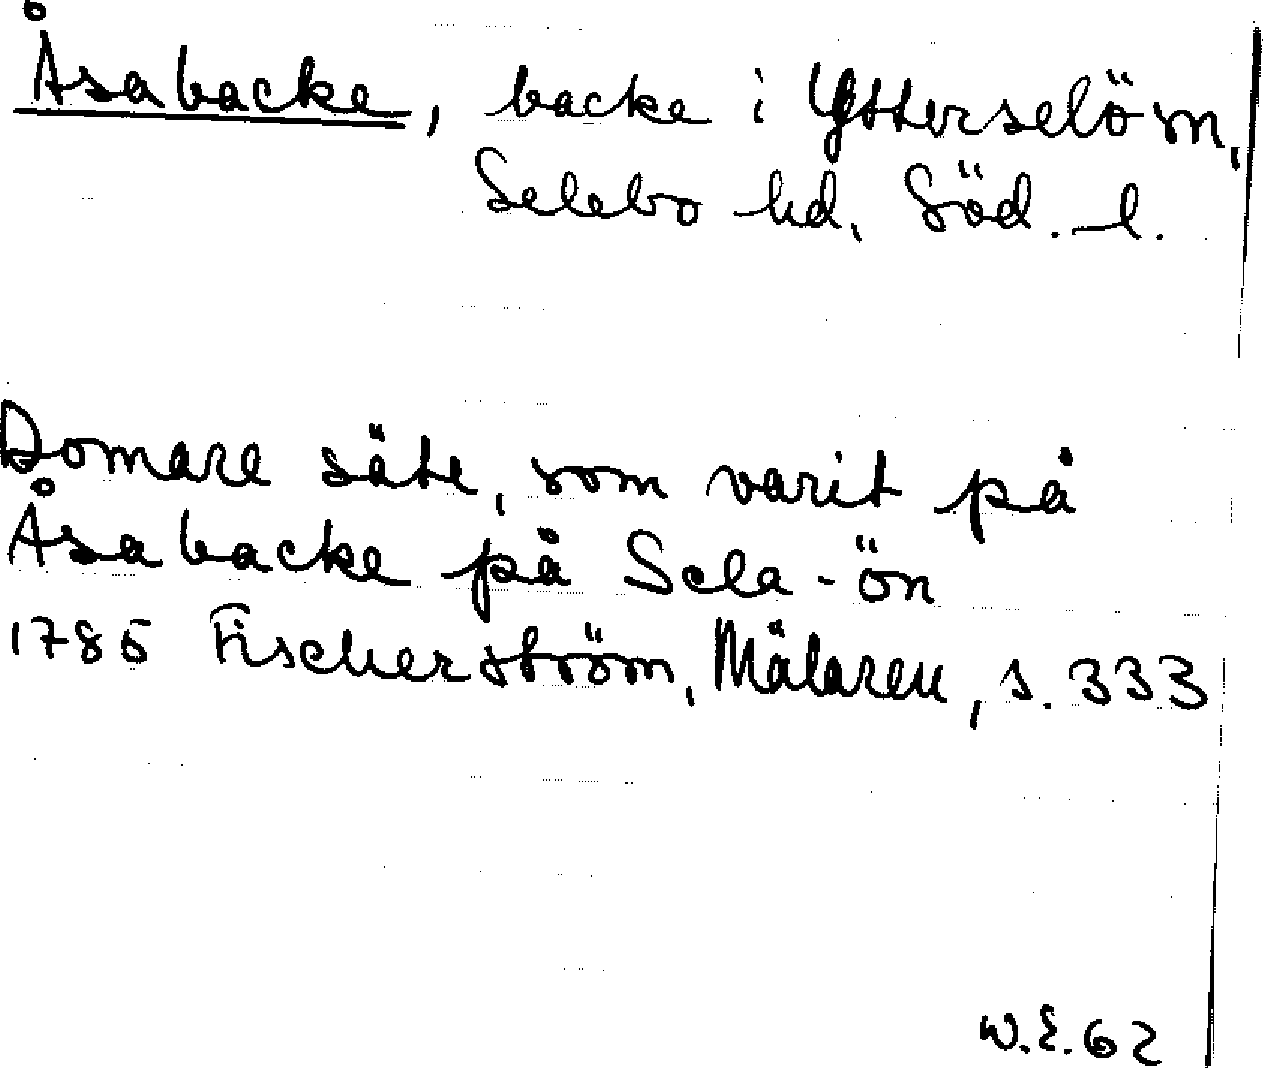 Åsabacke, backe i Ytterselö sn,
Selebo hd, Söd. l.
Domare säte, som varit på
Åsabacke på Sela-ön
1785 Fischerström, Mälaren, s. 333
W.E. 62